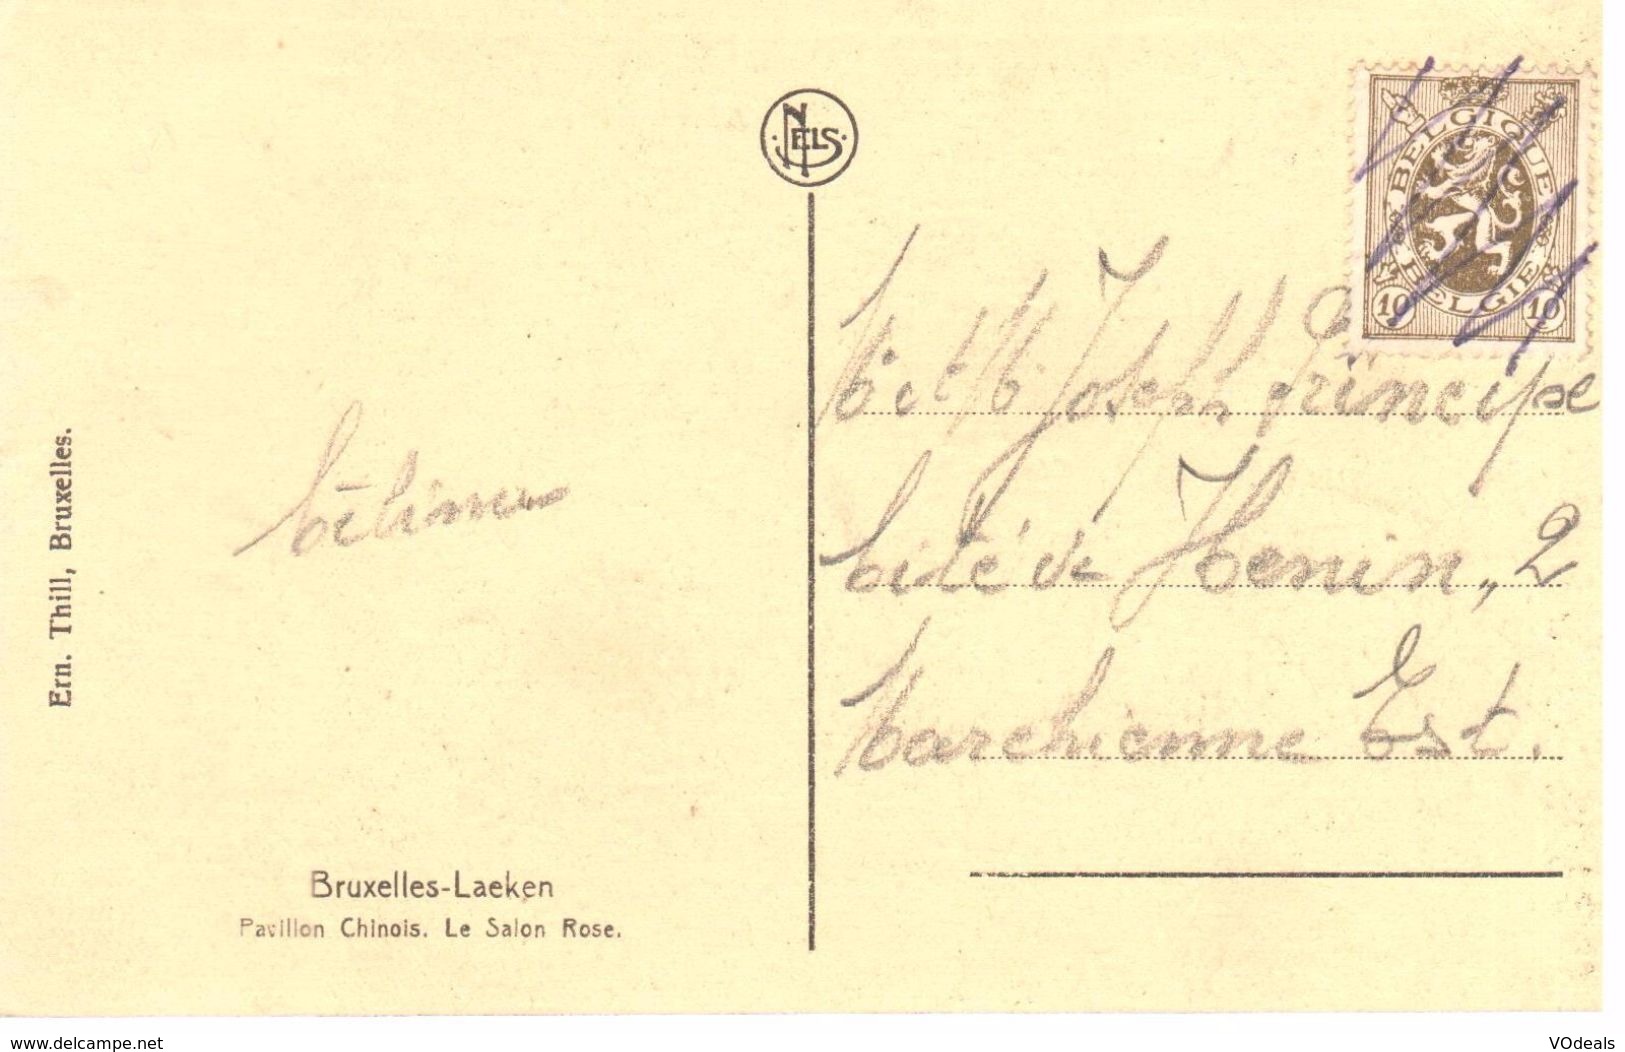 NELS
BELGIQUE
BELGIE
10 10
Ern. Thill, Bruxelles.
Célina
M. et M. Joseph Principe
Cité de Henin, 2
Marchienne Est.
Bruxelles-Laeken
Pavillon Chinois. Le Salon Rose.
www.delcampe.net
VOdeals